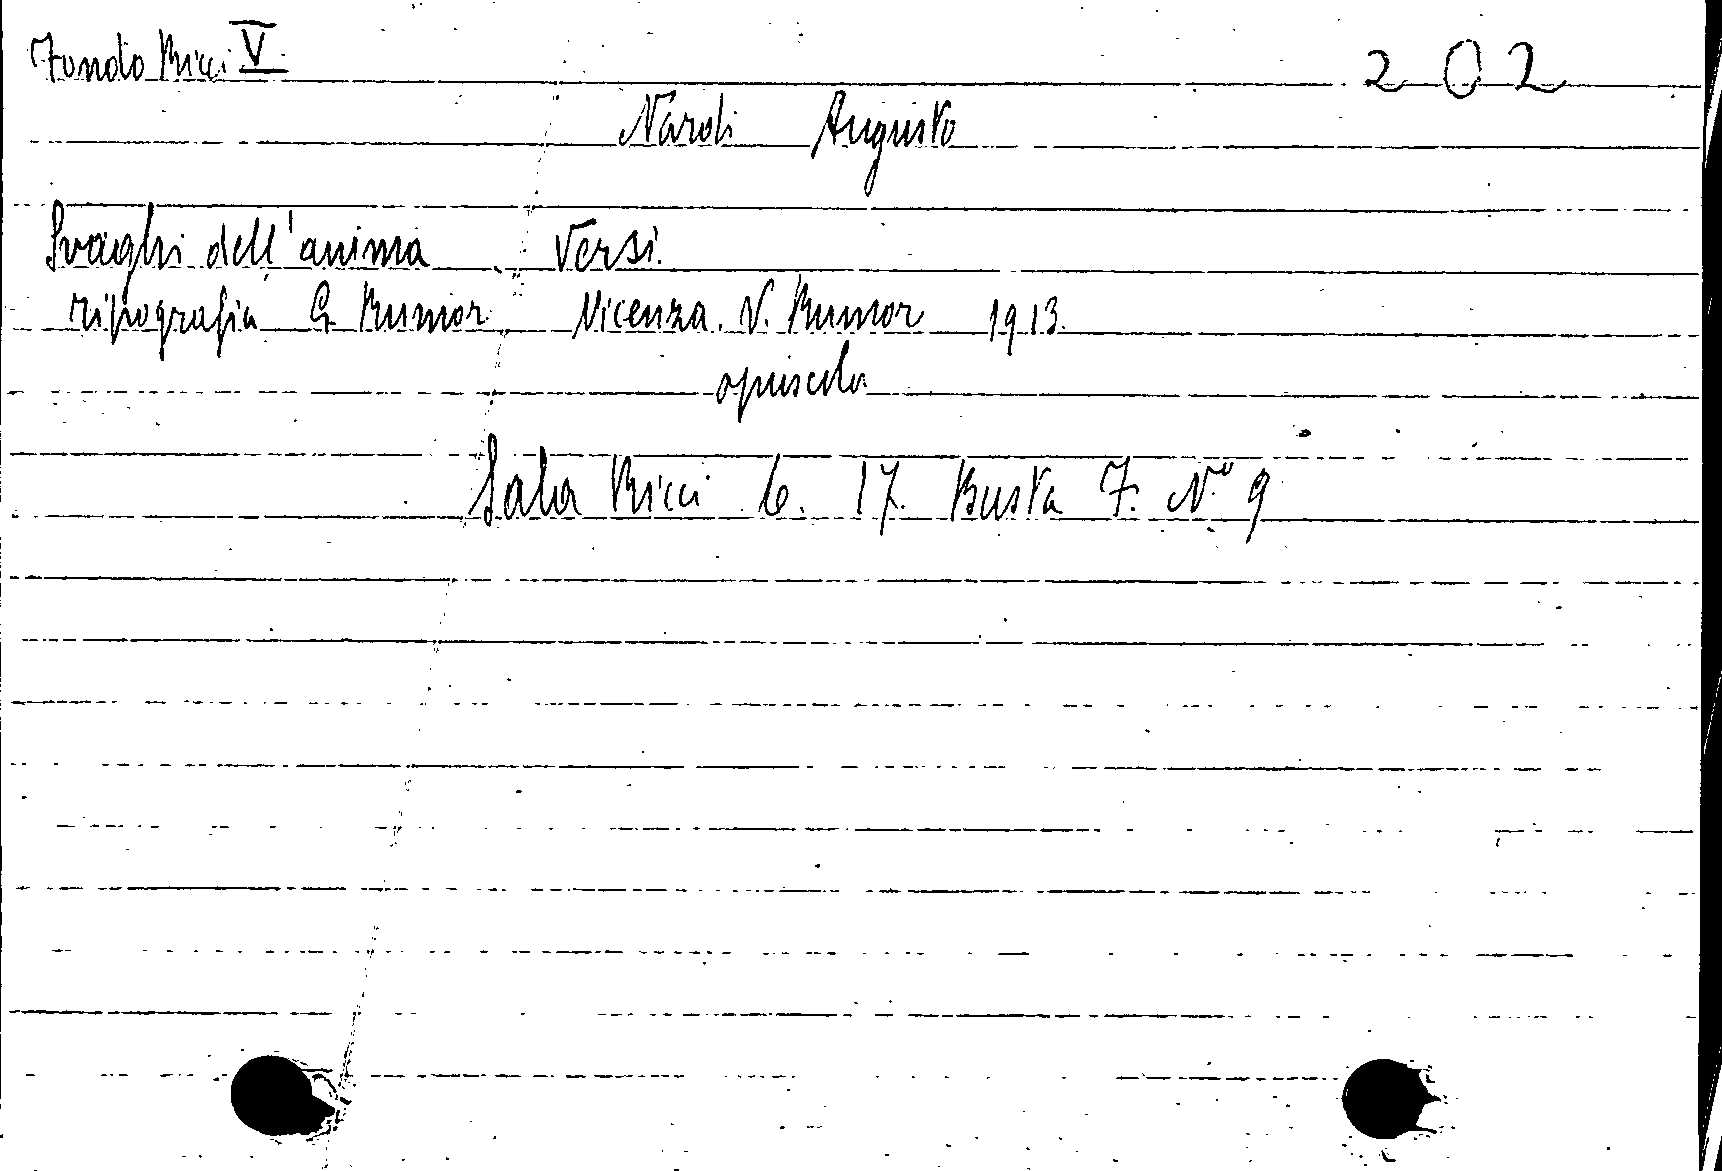 Fondo Ricci V. 202
Nardi Augusto
Svaghi dell'anima. Versi.
Tipografia G. Rumor. Vicenza. N. Rumor 1913.
opuscolo
Sala Ricci C. 17. Busta 7. N.º 9